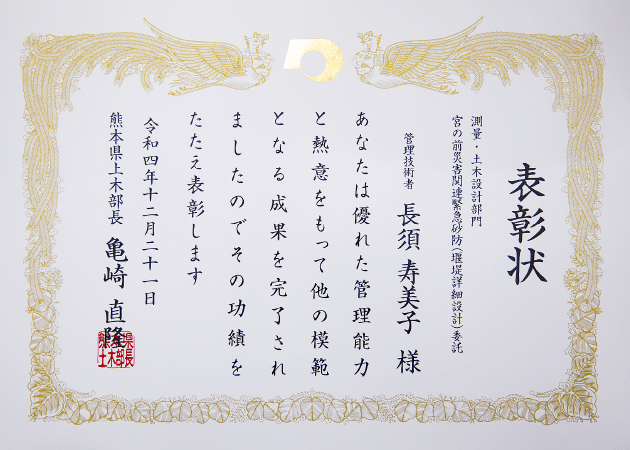 表彰状
測量・土木設計部門
宮の前災害関連緊急砂防(堰堤詳細設計)委託
管理技術者 長須 寿美子 様
あなたは優れた管理能力
と熱意をもって他の模範
となる成果を完了され
ましたのでその功績を
たたえ表彰します
令和四年十二月二十一日
熊本県土木部長 亀崎 直隆
熊本県
土木部長